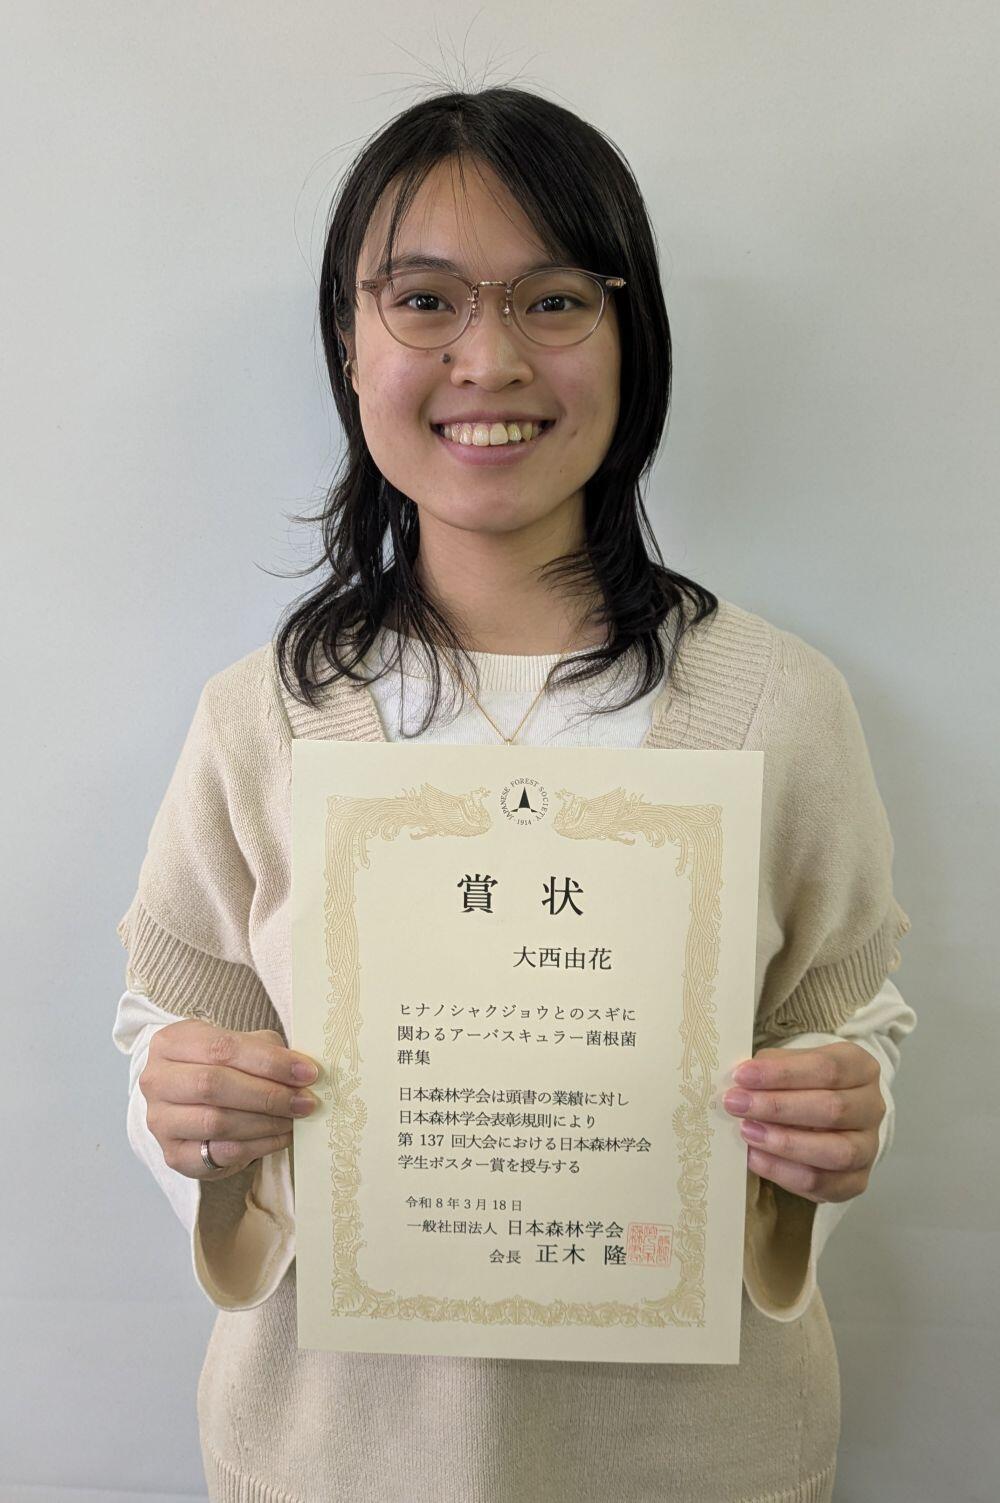 JAPANESE FOREST SOCIETY
・1914・
賞 状
大西由花
ヒナノシャクジョウとのスギに
関わるアーバスキュラー菌根菌
群集
日本森林学会は頭書の業績に対し
日本森林学会表彰規則により
第 137 回大会における日本森林学会
学生ポスター賞を授与する
令和 8 年 3 月 18 日
一般社団法人 日本森林学会
会長 正木 隆